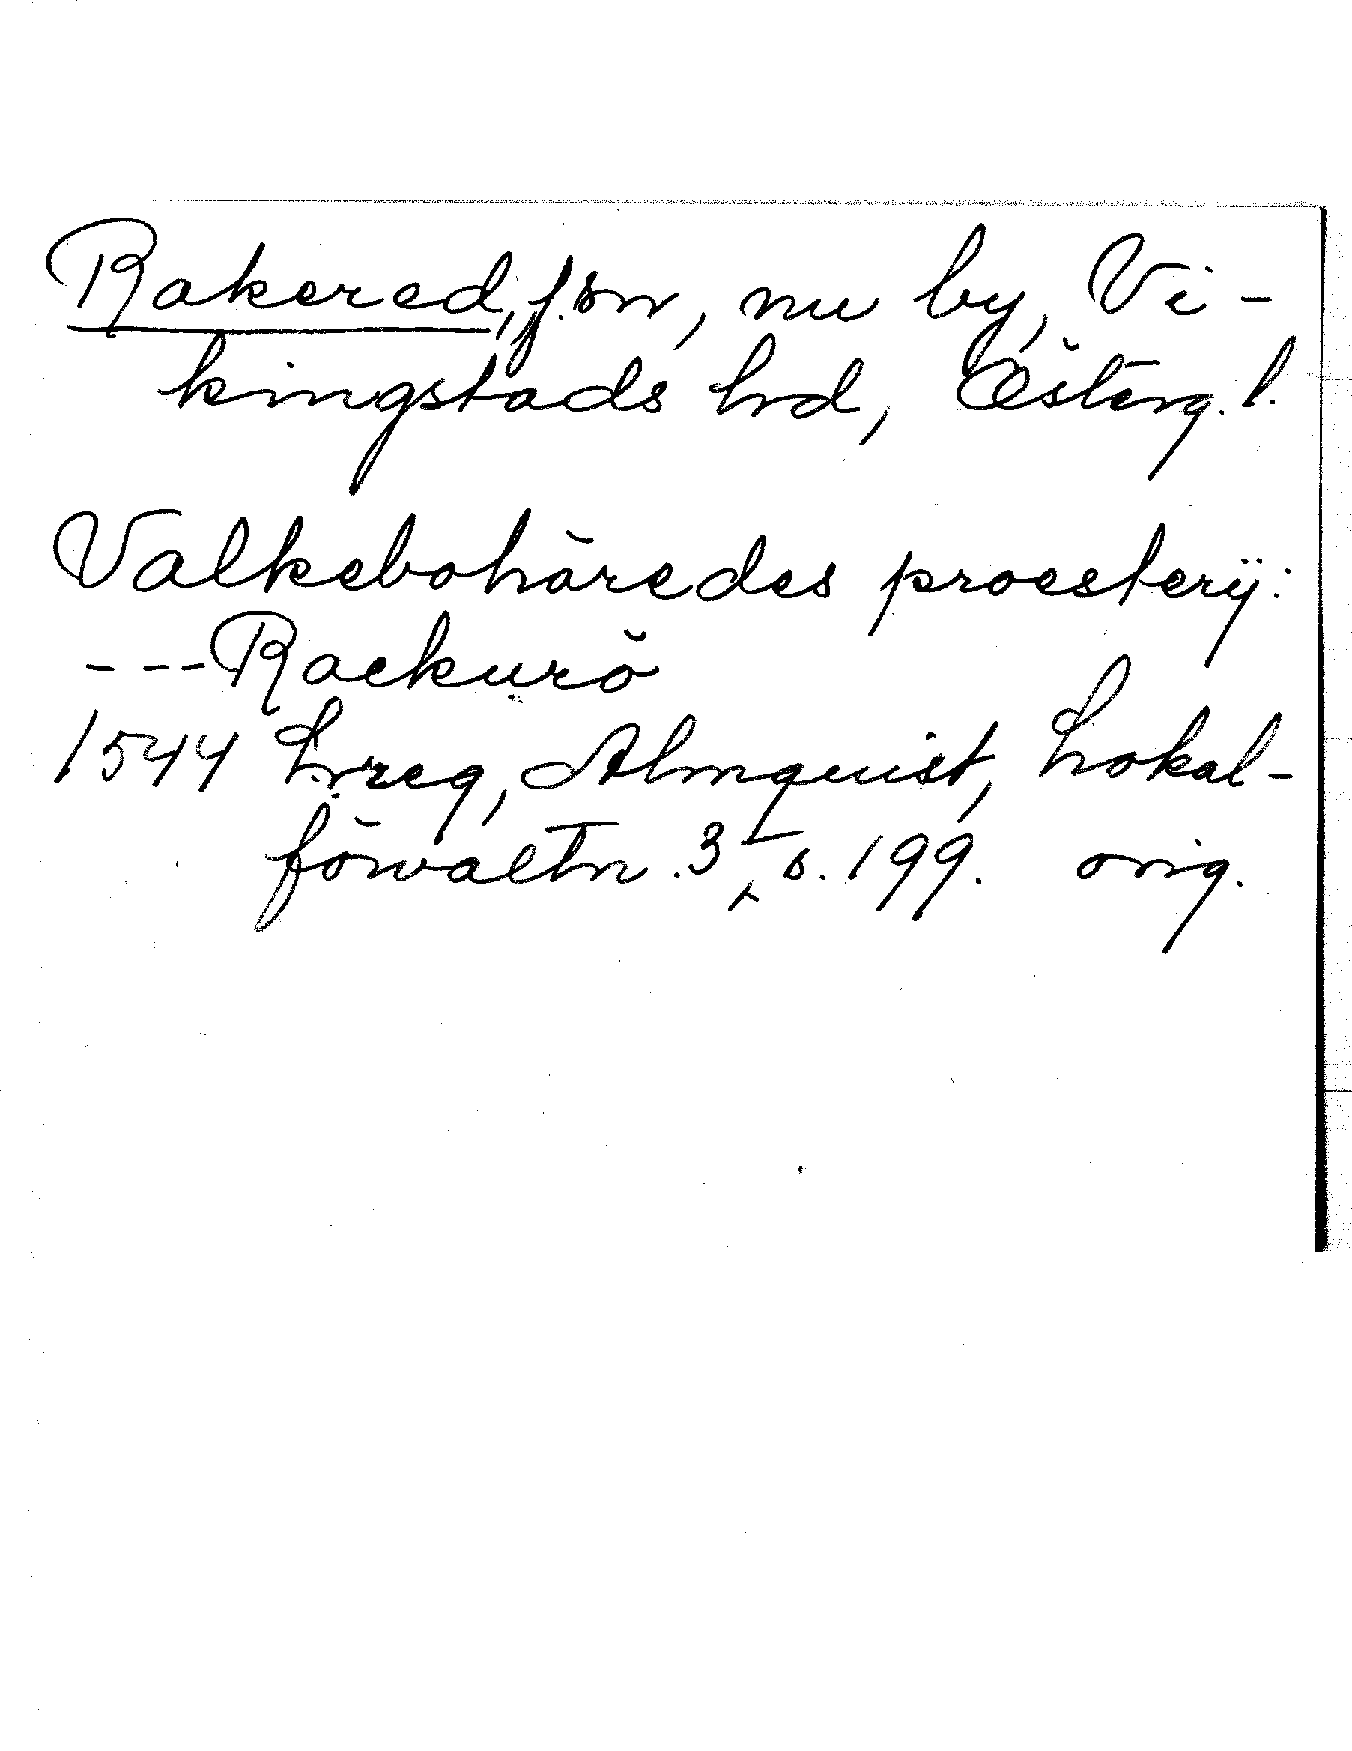 Rakered, f. sn, nu by, Vi-
kingstads hd, Österg. l.
Valkebohäredes proesterij:
---Raekurö
1544 Lrreg, Almquist, Lokal-
förvaltn. 3, s. 199. orig.